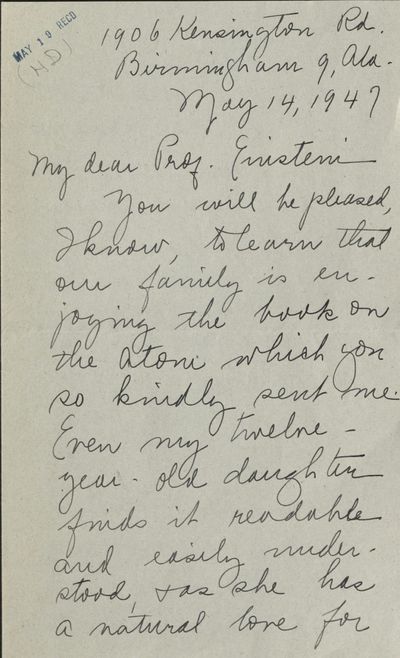 MAY 19 RECD
(HD)
1906 Kensington Rd.
Birmingham 9, Ala.
May 14, 1947
My dear Prof. Einstein
You will be pleased,
I know, to learn that
our family is en-
joying the book on
the atom which you
so kindly sent me.
Even my twelve-
year-old daughter
finds it readable
and easily under-
stood, & as she has
a natural love for